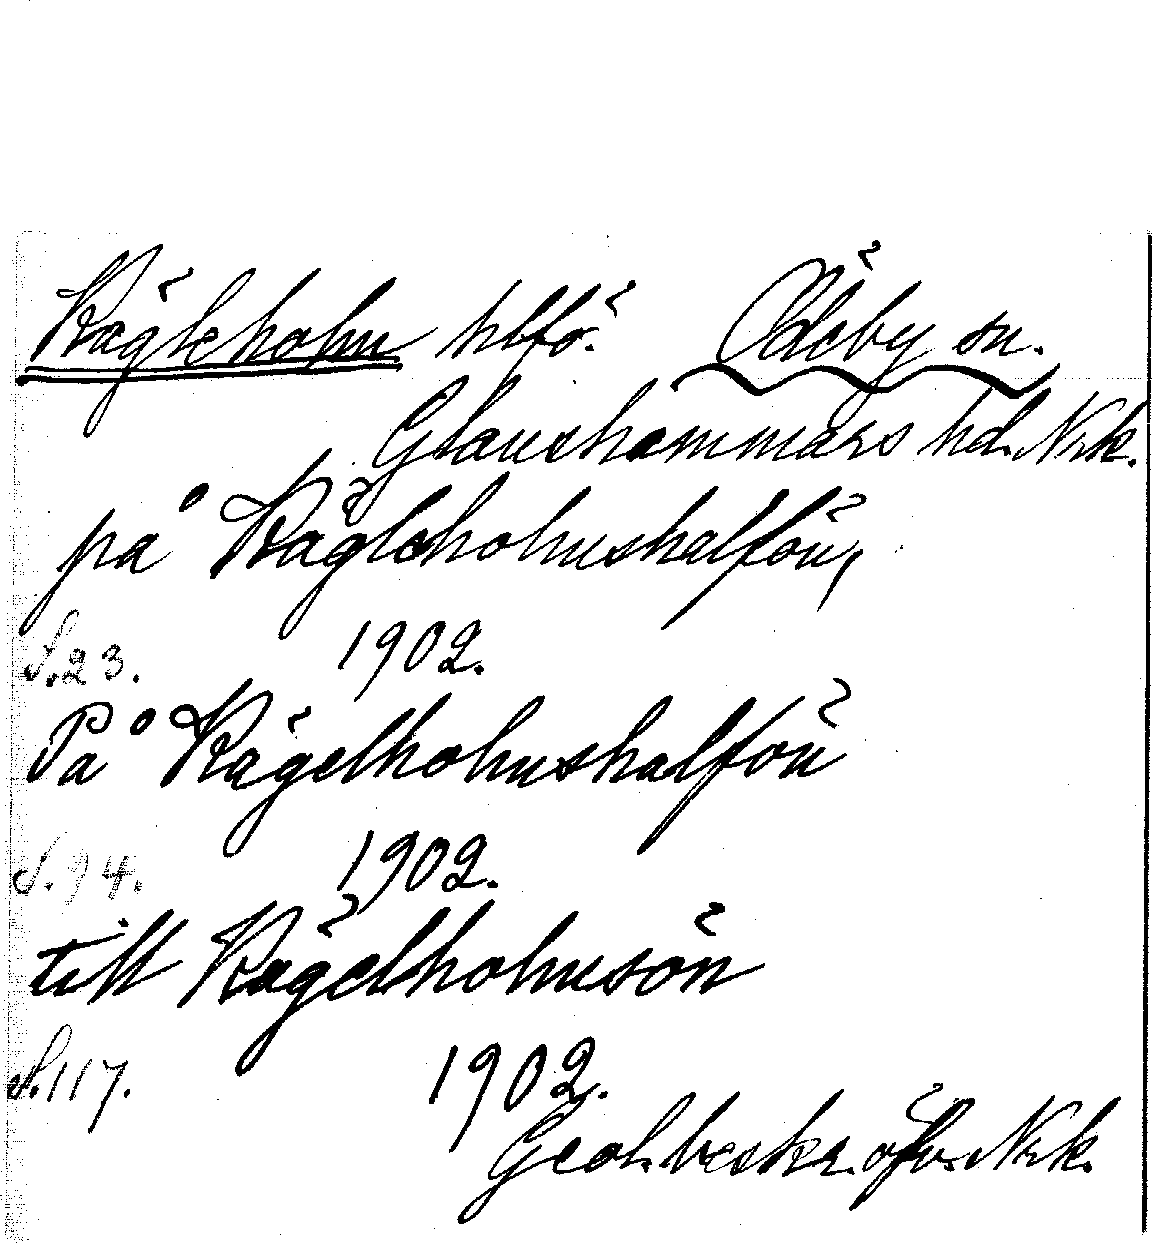 Kägleholm hlfö. Ödeby sn.
Glanshammars hd. Nrk.
på Kägleholmshalfön,
S. 23. 1902.
På Kägelholmshalfön
S. 94. 1902.
till Kägelholmsön
S. 117. 1902.
Geol. beskr. öfv. Nrk.